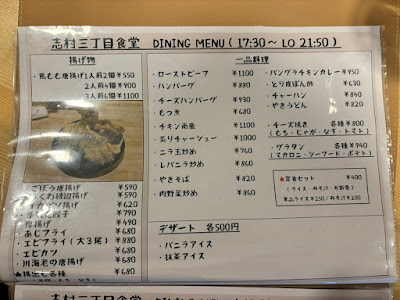 志村三丁目食堂 DINING MENU ( 17:30～ LO 21:50 )
揚げ物
・鳥もも唐揚げ1人前2個 ¥550
2人前4個 ¥900
3人前6個 ¥1100
・ごぼう唐揚げ ¥590
ちくわ磯辺揚げ ¥590
イカゲソ揚げ ¥620
¥790
¥680
・あじフライ ¥680
・エビフライ(大3尾) ¥880
・エビカツ ¥680
・川海老の唐揚げ ¥680
一品料理
・ローストビーフ ¥1100
・ハンバーグ ¥880
・チーズハンバーグ ¥930
・もつ煮 ¥680
・チキン南蛮 ¥1100
・炙りチャーシュー ¥1100
・ニラ玉炒め ¥860
・レバニラ炒め ¥860
・やきそば ¥860
・肉野菜炒め ¥860
デザート 各500円
・バニラアイス
・抹茶アイス
・バングラチキンカレー ¥950
・とり皮ぽん酢 ¥630
・チャーハン ¥840
・やきうどん ¥840
・チーズ焼き 各種 ¥800
(もち・じゃが・なす・トマト)
・グラタン 各種 ¥940
(マカロニ・シーフード・ポテト)
★定食セット ¥400
単品ライス¥250/みそ汁¥200
志村三丁目食堂